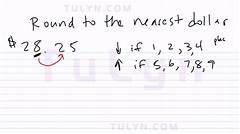 TULYN.COM
Round to the nearest dollar
$28.25 ↓ if 1, 2, 3, 4
↑ if 5, 6, 7, 8, 9
Tulyn
TULYN.COM